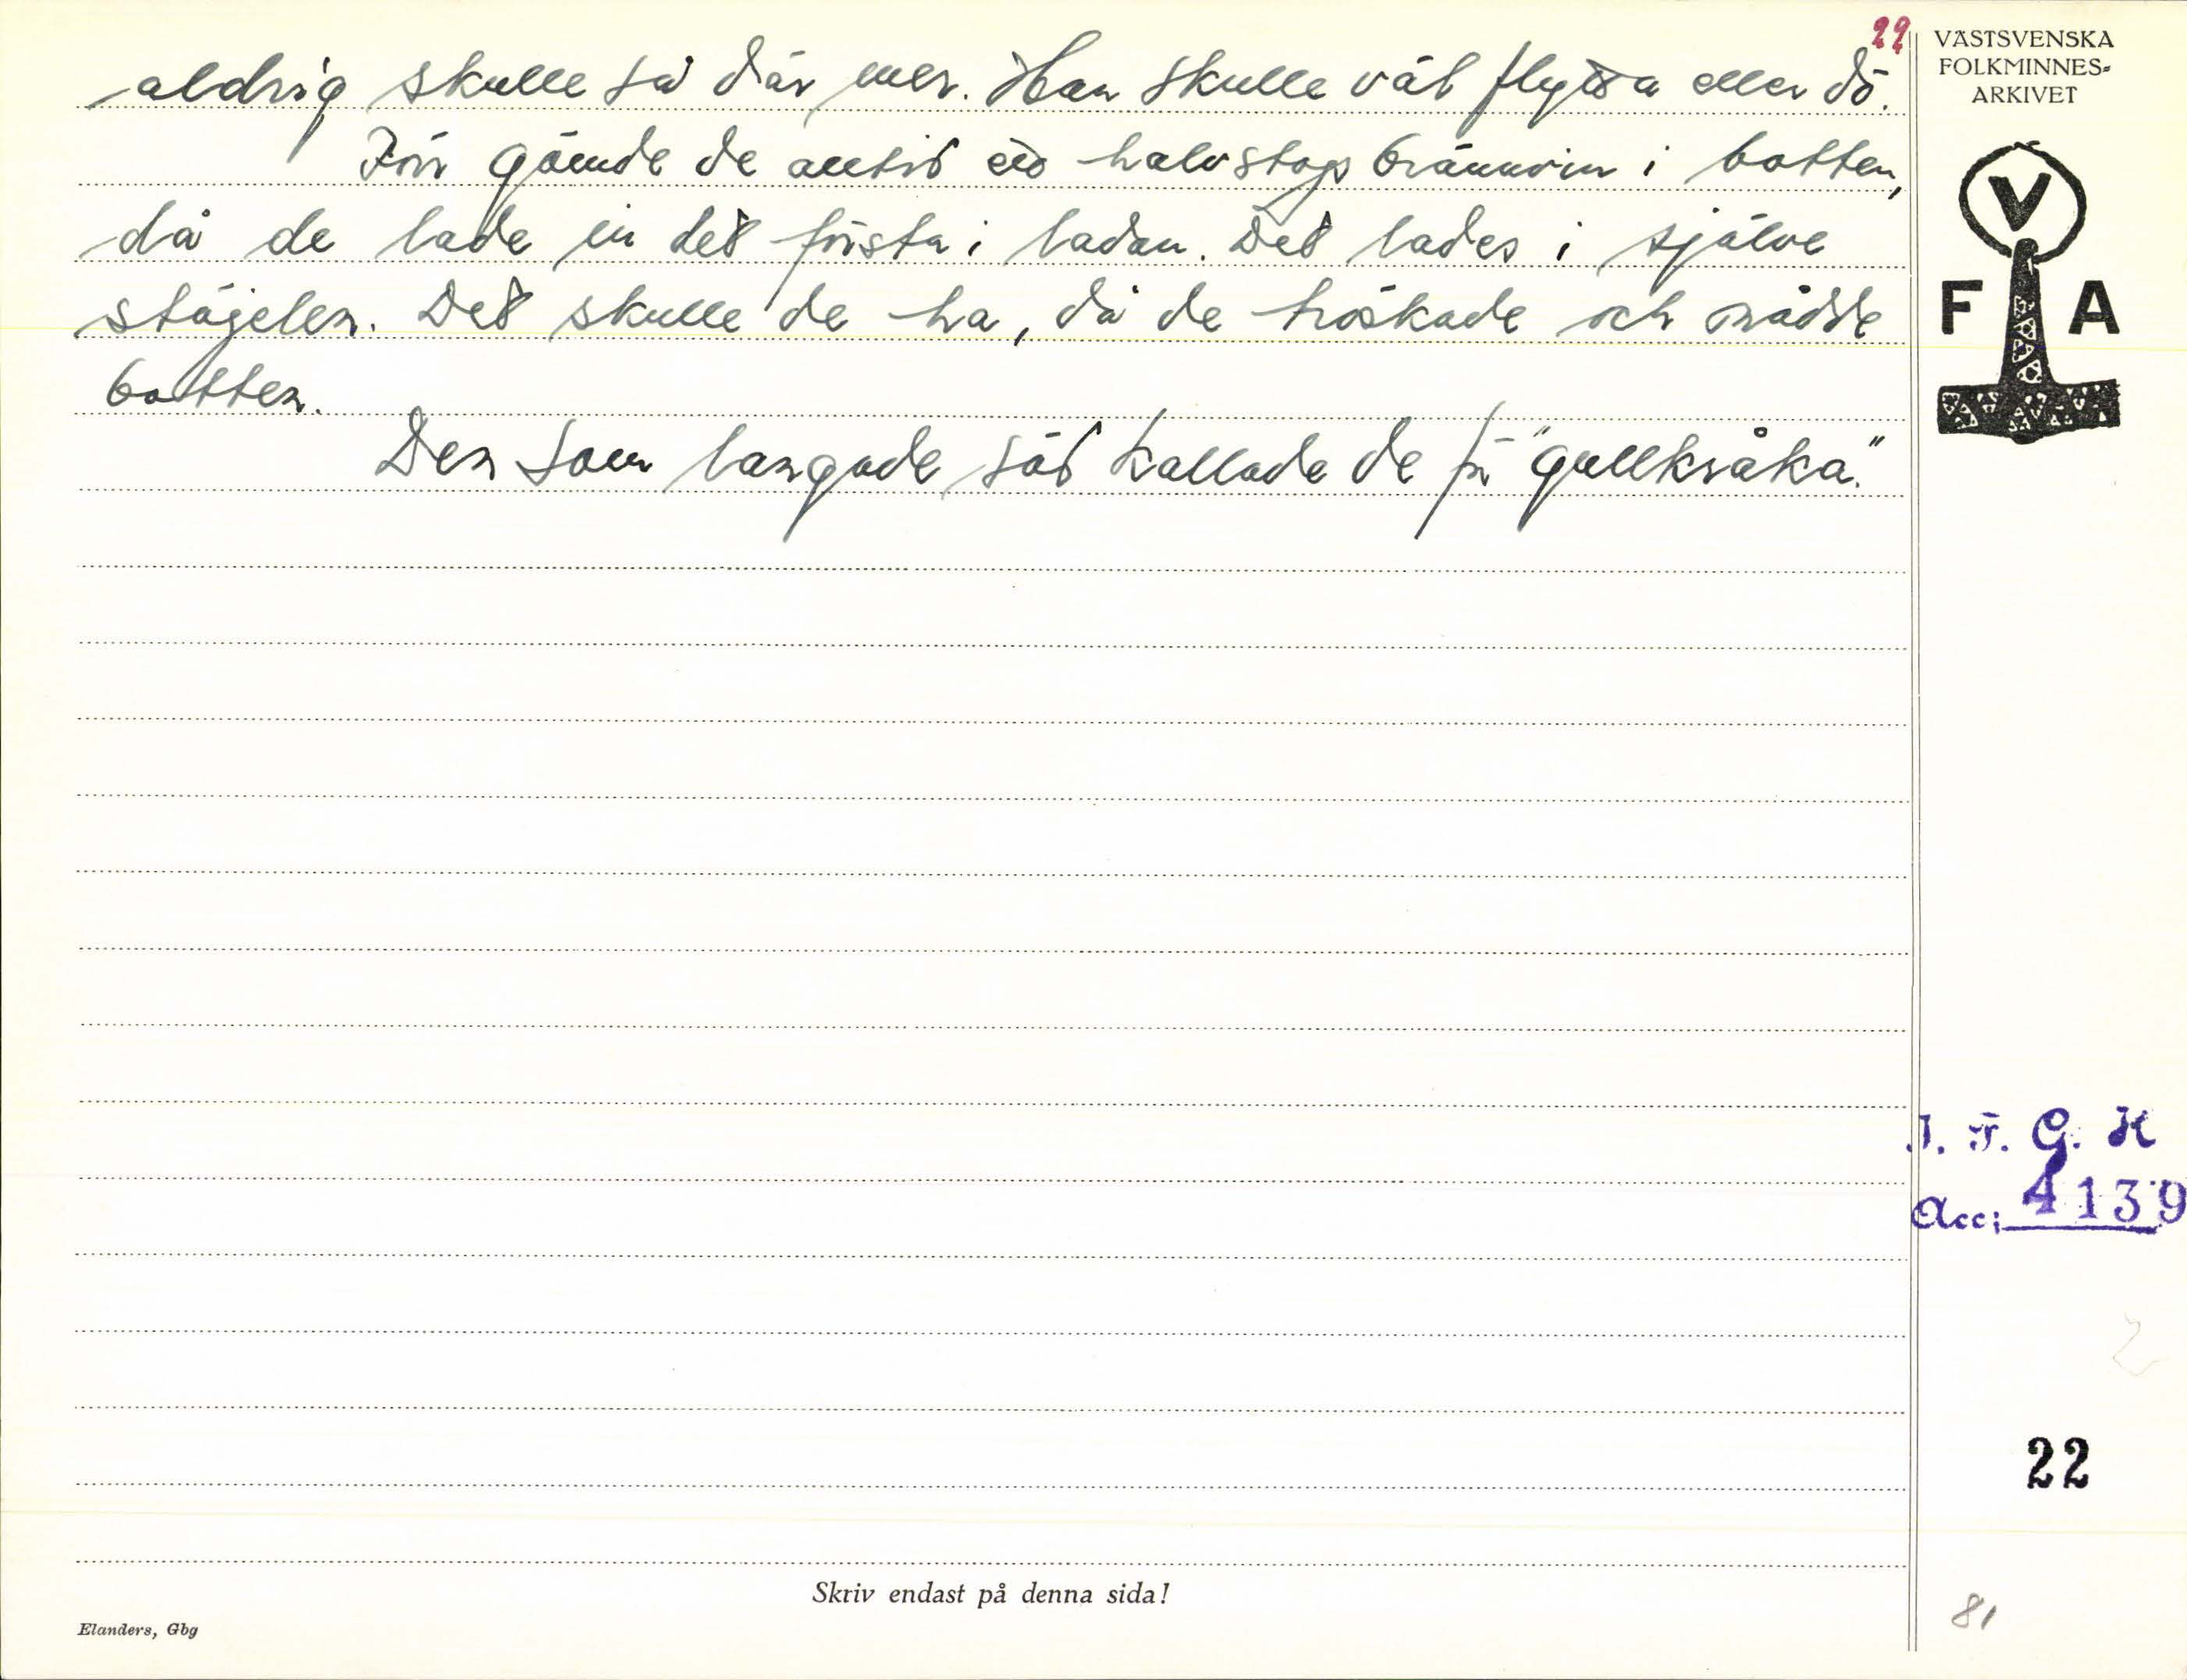 22
aldrig skulle så där mer. Han skulle väl flytta eller dö.
Förr gömde de alltid ett halvstop brännvin i botten,
då de lade in det första i ladan. Det lades i själve
stäjelen. Det skulle de ha, då de tröskade och nådde
botten.
Den som langade säd kallade de på "gullkråka."
VÄSTSVENSKA
FOLKMINNES-
ARKIVET
V
F A
I. F. G. H
Acc: 4139
22
81
Skriv endast på denna sida!
Elanders, Gbg